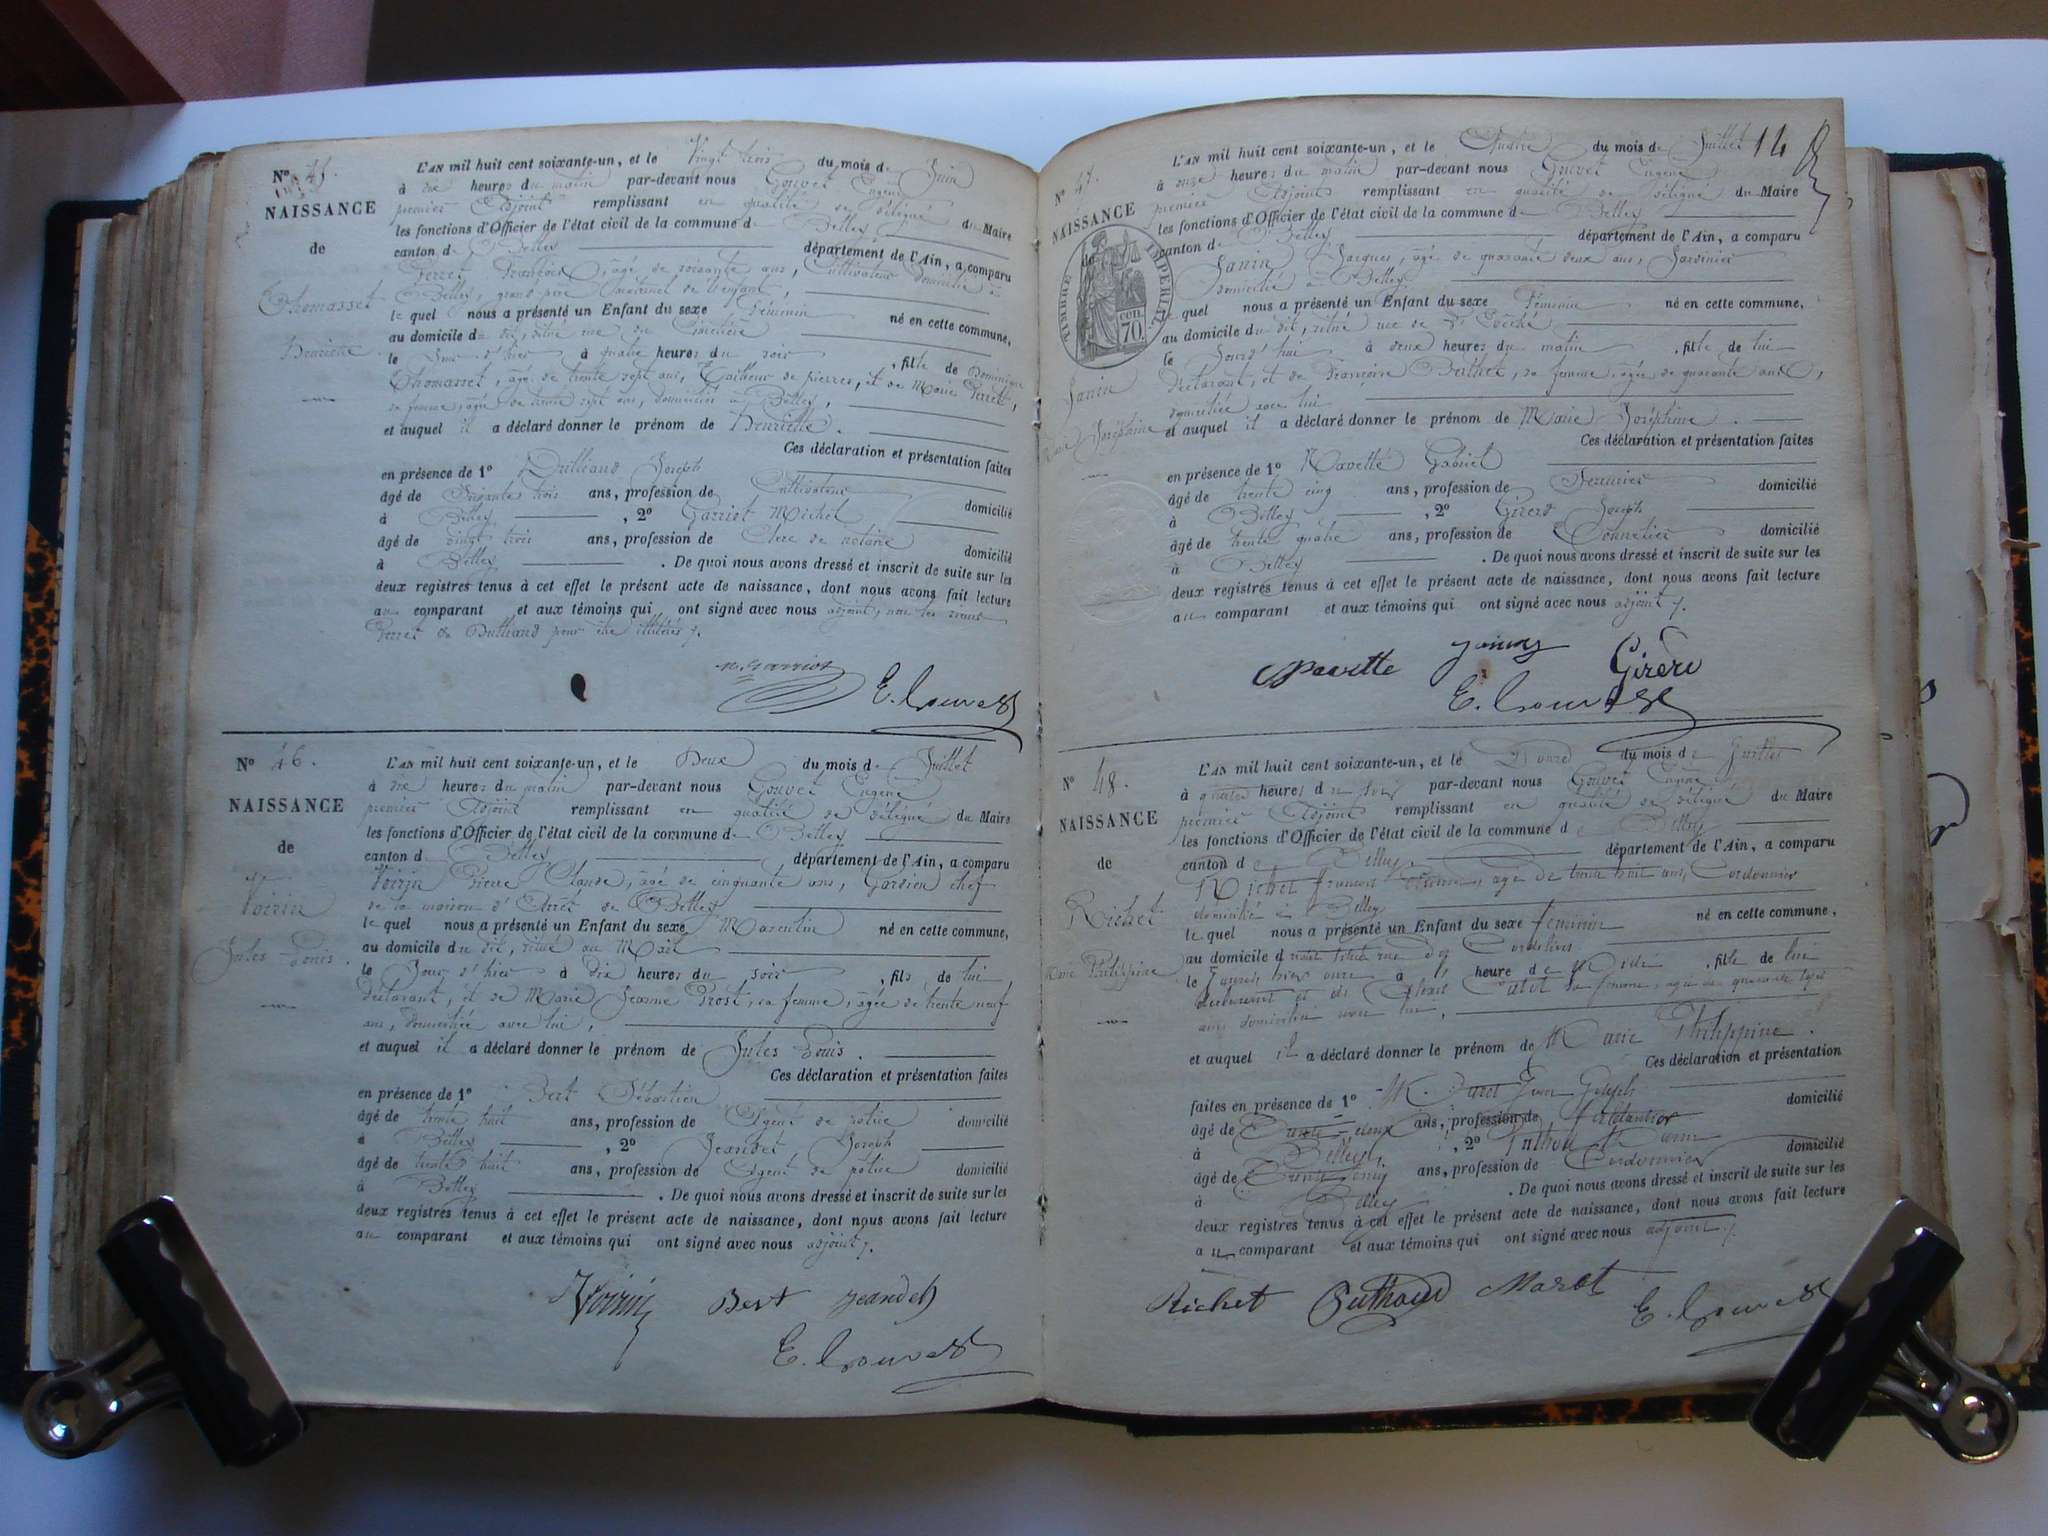 No 45.
NAISSANCE
de
Thomasset
Henriette
L'AN mil huit cent soixante-un, et le Vingt trois du mois de Juin
à dix heures du matin par-devant nous Gouvet Eugène
premier Adjoint remplissant en qualité de délégué du Maire
les fonctions d'Officier de l'état civil de la commune de Belley
canton de Belley département de l'Ain, a comparu
Perret François, âgé de soixante ans, Cultivateur domicilié à
Belley, grand-père maternel de l'enfant,
lequel nous a présenté un Enfant du sexe Féminin né en cette commune,
au domicile du dit, situé rue du Cimetière
le Jour d'hier à quatre heures du soir, fille de Dominique
Thomasset, âgé de trente sept ans, Tailleur de pierres, et de Marie Perret,
sa femme, âgée de trente sept ans, domiciliés à Belley,
et auquel il a déclaré donner le prénom de Henriette.
Ces déclaration et présentation faites
en présence de 1º Joseph
âgé de Soixante trois ans, profession de Cultivateur domicilié
à Belley, 2º Garriot Michel
âgé de vingt trois ans, profession de Clerc de notaire domicilié
à Belley. De quoi nous avons dressé et inscrit de suite sur les
deux registres tenus à cet effet le présent acte de naissance, dont nous avons fait lecture
au comparant et aux témoins qui ont signé avec nous adjoint, non les sieurs
Perret & pour être illitérés.
E. Gouvet
No 46.
NAISSANCE
de
Voirin
Jules Louis.
L'AN mil huit cent soixante-un, et le Deux du mois de Juillet
à dix heures du matin par-devant nous Gouvet Eugène
premier Adjoint remplissant en qualité de délégué du Maire
les fonctions d'Officier de l'état civil de la commune de Belley
canton de Belley département de l'Ain, a comparu
Voirin Pierre Claude, âgé de cinquante ans, Gardien chef
de la maison d'Arrêt de Belley
lequel nous a présenté un Enfant du sexe Masculin né en cette commune,
au domicile du dit, situé au Mail
le Jour d'hier à Dix heures du soir, fils de lui
déclarant, et de Marie Jeanne Prost, sa femme, âgée de trente neuf
ans, domiciliée avec lui,
et auquel il a déclaré donner le prénom de Jules Louis.
Ces déclaration et présentation faites
en présence de 1º Bert Sébastien
âgé de trente huit ans, profession de Agent de police domicilié
à Belley, 2º Jeandet Joseph
âgé de trente huit ans, profession de Agent de police domicilié
à Belley. De quoi nous avons dressé et inscrit de suite sur les
deux registres tenus à cet effet le présent acte de naissance, dont nous avons fait lecture
au comparant et aux témoins qui ont signé avec nous adjoint.
Voirin Bert Jeandet
E. Gouvet
14
No 47.
NAISSANCE
de
TIMBRE IMPERIAL
70. cen.
Janin
Marie Joséphine
L'AN mil huit cent soixante-un, et le du mois de Juillet
à onze heures du matin par-devant nous Gouvet Eugène
premier Adjoint remplissant en qualité de délégué du Maire
les fonctions d'Officier de l'état civil de la commune de Belley
canton de Belley département de l'Ain, a comparu
Janin Jacques, âgé de quarante deux ans, Jardinier
Domicilié à Belley
lequel nous a présenté un Enfant du sexe Féminin né en cette commune,
au domicile du dit, situé rue de l'Evêché
le Jourd'hui à deux heures du matin, fille de lui
déclarant, et de Françoise Berthet, sa femme, âgée de quarante ans,
domiciliée avec lui
et auquel il a déclaré donner le prénom de Marie Joséphine.
Ces déclaration et présentation faites
en présence de 1º Gabriel
âgé de trente cinq ans, profession de Serrurier domicilié
à Belley, 2º Girerd Joseph
âgé de trente quatre ans, profession de Tonnelier domicilié
à Belley. De quoi nous avons dressé et inscrit de suite sur les
deux registres tenus à cet effet le présent acte de naissance, dont nous avons fait lecture
au comparant et aux témoins qui ont signé avec nous adjoint.
Janin Girerd
E. Gouvet
No 48.
NAISSANCE
de
Richet
Marie Philippine
L'AN mil huit cent soixante-un, et le Douze du mois de Juillet
à quatre heures du soir par-devant nous Gouvet Eugène
premier Adjoint remplissant en qualité de délégué du Maire
les fonctions d'Officier de l'état civil de la commune de Belley
canton de Belley département de l'Ain, a comparu
Richet François, âgé de trente huit ans, Cordonnier
domicilié à Belley
lequel nous a présenté un Enfant du sexe féminin né en cette commune,
au domicile du situé rue des Cordeliers
le hier onze à heure de Midi, fille de lui
déclarant et de sa femme, âgée de quarante
ans domiciliée avec lui,
et auquel il a déclaré donner le prénom de Marie Philippine.
Ces déclaration et présentation
faites en présence de 1º Joseph domicilié
âgé de ans, profession de
à Belley, 2º domicilié
âgé de Trente cinq ans, profession de Cordonnier
à Belley. De quoi nous avons dressé et inscrit de suite sur les
deux registres tenus à cet effet le présent acte de naissance, dont nous avons fait lecture
au comparant et aux témoins qui ont signé avec nous adjoint.
Richet Marot
E. Gouvet